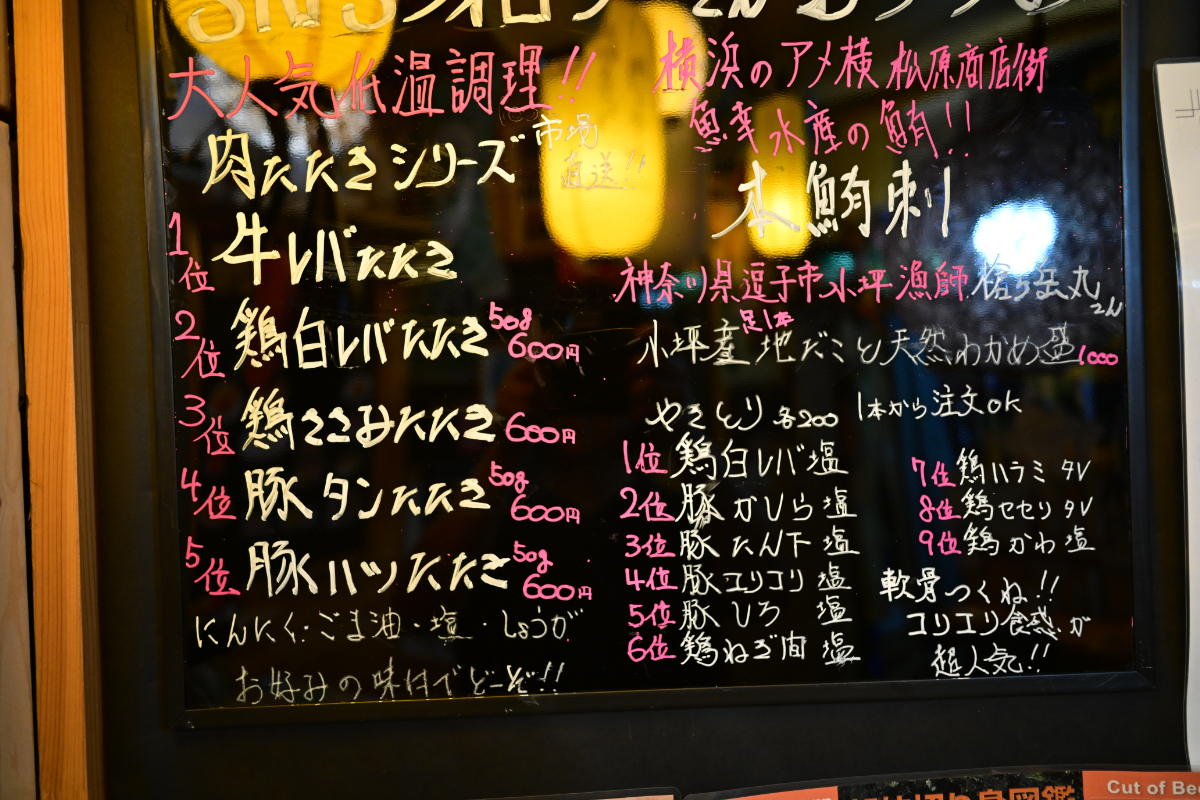 SNSフォロワーさん
大人気低温調理!!
肉たたきシリーズ
市場
直送!!
1位 牛レバたたき
2位 鶏白レバたたき 50g 600円
3位 鶏ささみたたき 600円
4位 豚タンたたき 50g 600円
5位 豚ハツたたき 50g 600円
にんにく・ごま油・塩・しょうが
お好みの味付でどーぞ!!
横浜のアメ横 松原商店街
魚幸水産の鮪!!
本鮪刺
神奈川県逗子市小坪漁師 槍ヶ岳丸さん
足1本
小坪産地だこと天然わかめ盛 1000
やきとり 各200 1本から注文OK
1位 鶏白レバ塩
2位 豚かしら塩
3位 豚たん下塩
4位 豚コリコリ塩
5位 豚ひろ 塩
6位 鶏ねぎ間 塩
7位 鶏ハラミ タレ
8位 鶏セセリ タレ
9位 鶏かわ 塩
軟骨つくね!!
コリコリ食感が
超人気!!
Cut of Be